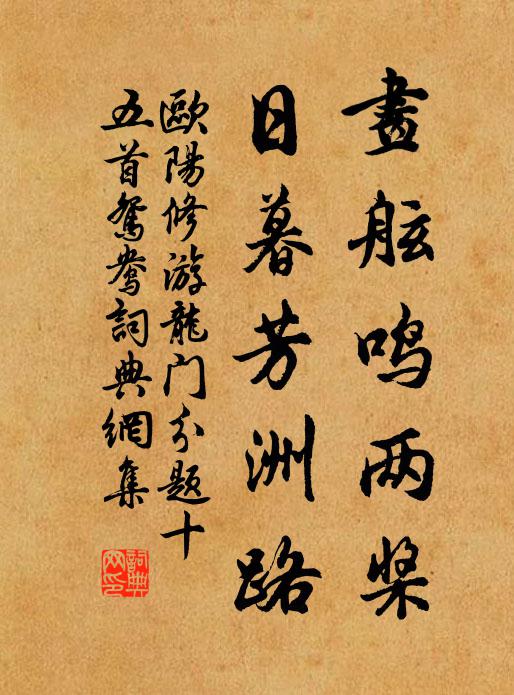 畫舷鸣两桨
日暮芳洲路
歐陽修游龍门分题十
五首鴛鴦詞典網集
詞典
网印